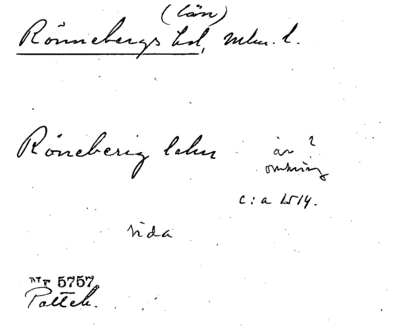 (län)
Rönnebergs hd, Mlm. l.
Röneberig lehn
år ?
omkring
c:a 1514.
sida
Nr 5757